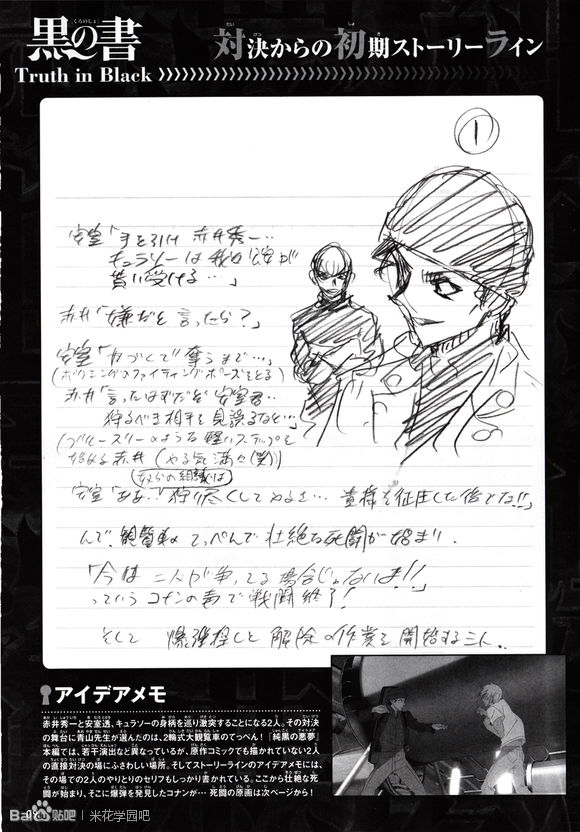 黒の書
くろのしょ
Truth in Black
対決からの初期ストーリーライン
1
安室「手を引け 赤井秀一…
キュラソーは我々公安が
貰い受ける…」
赤井「嫌だと言ったら?」
安室「力づくで奪うまで…」
(ボクシングのファイティングポーズをとる)
赤井「言ったはずだぞ 安室君…
狩るべき相手を見誤るなと…」
(ブルースリーのような軽いステップを
始める赤井(やる気満々(笑))
安室「ああ…奴らの組織は狩り尽くしてやるさ… 貴様を征圧した後でな!!」
んで、観覧車のてっぺんで壮絶な死闘が始まり、
「今は二人が争ってる場合じゃないよ!!」
っていうコナンの声で戦闘終了!
そして 爆弾捜しと解除の作業を開始する三人。
アイデアメモ
赤井秀一と安室透、キュラソーの身柄を巡り激突することになる2人。その対決
の舞台に青山先生が選んだのは、2輪式大観覧車のてっぺん!『純黒の悪夢』
本編では、若干演出など異なっているが、原作コミックでも描かれていない2人
の直接対決の場にふさわしい場所。そしてストーリーラインのアイデアメモには、
その場での2人のやりとりのセリフもしっかり書かれている。ここから壮絶な死
闘が始まり、そこに爆弾を発見したコナンが… 死闘の原画は次ページから!
Bai贴吧 | 米花学园吧